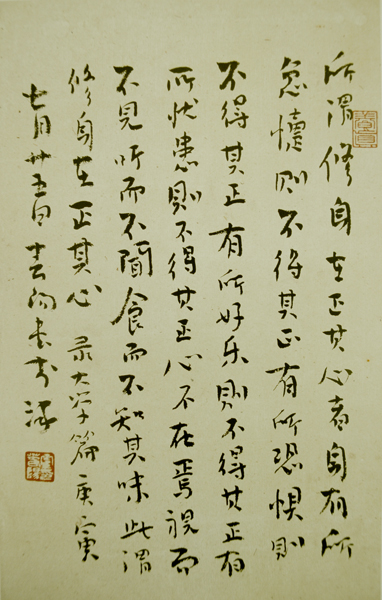 所谓修身在正其心者身有所
忿懥则不得其正有所恐惧则
不得其正有所好乐则不得其正有
所忧患则不得其正心不在焉视而
不见听而不闻食而不知其味此谓
修身在正其心 录大学篇 庚寅
七月廿五日